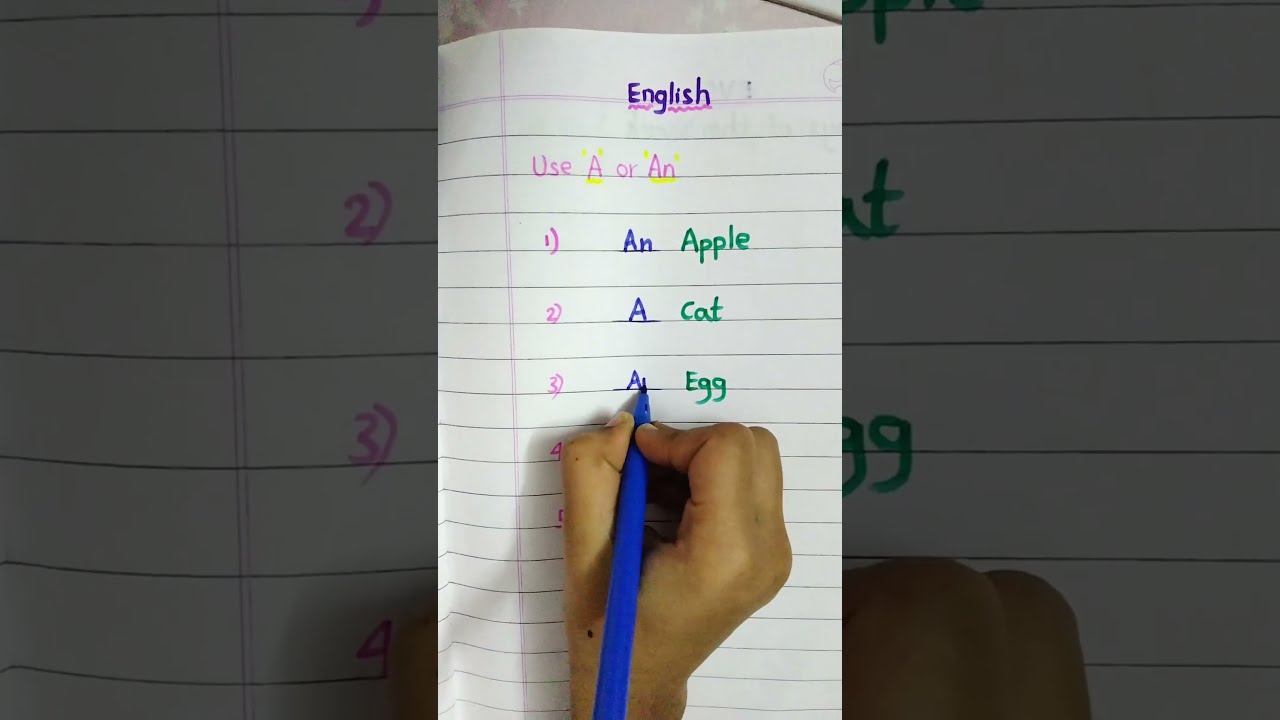 English
Use 'A' or 'An'
1) An Apple
2) A Cat
3) A Egg
4